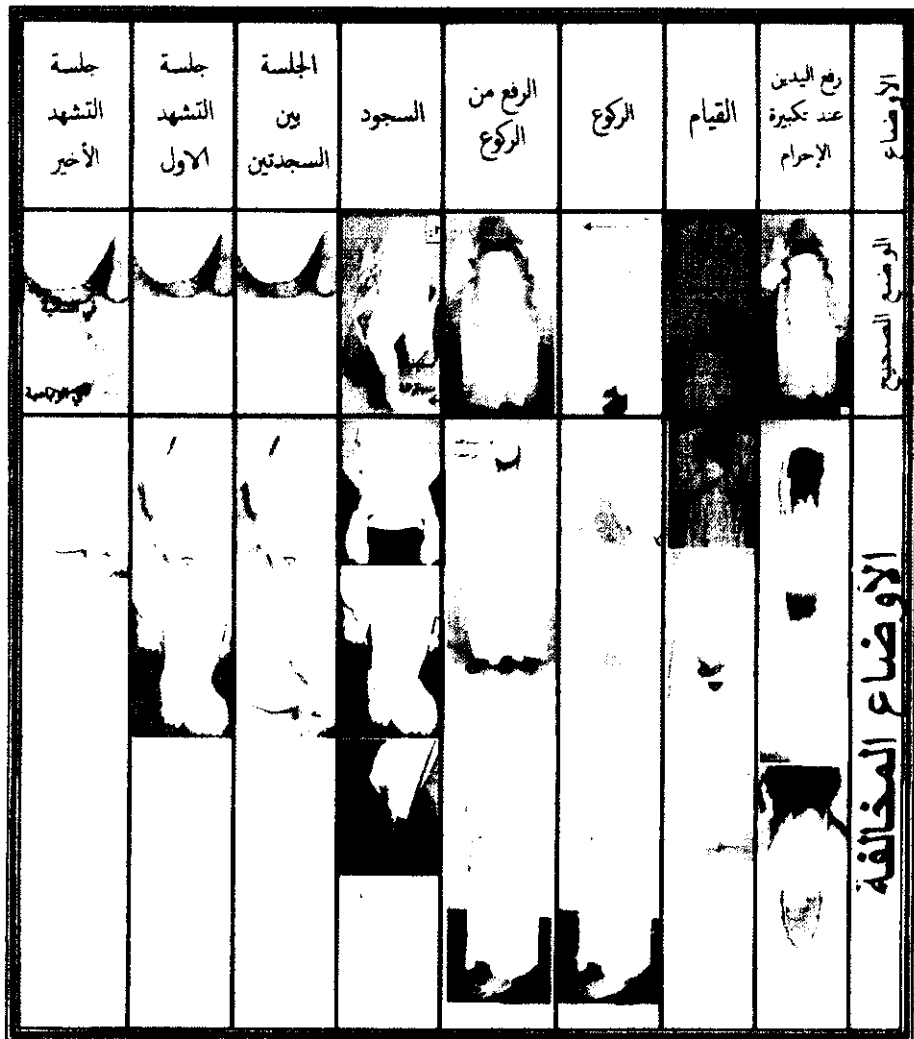 الأوضاع
رفع اليدين
عند تكبيرة
الإحرام
القيام
الركوع
الرفع من
الركوع
السجود
الجلسة
بين
السجدتين
جلسة
التشهد
الاول
جلسة
التشهد
الأخير
الوضع الصحيح
الأوضاع المخالفة